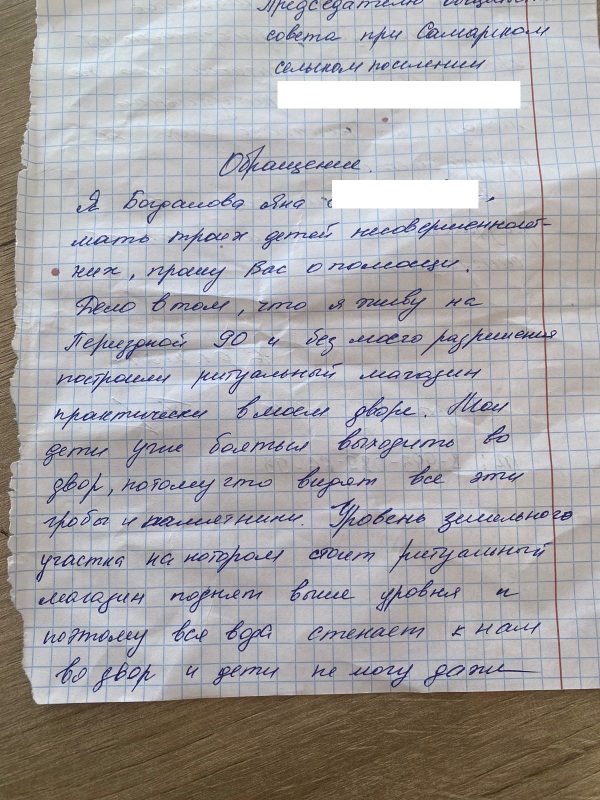 Председателю общест
совета при Самарском
сельском поселении
Обращение.
Я Богдалова Яна
мать троих детей несовершеннолет-
них, прошу Вас о помощи.
Дело в том, что я живу на
Переездной 90 и без моего разрешения
построили ритуальный магазин
практически в моем дворе. Мои
дети уже бояться выходить во
двор, потому что видят все эти
гробы и памятники. Уровень земельного
участка на котором стоит ритуальный
магазин поднят выше уровня и
поэтому вся вода стекает к нам
во двор и дети не могу даже